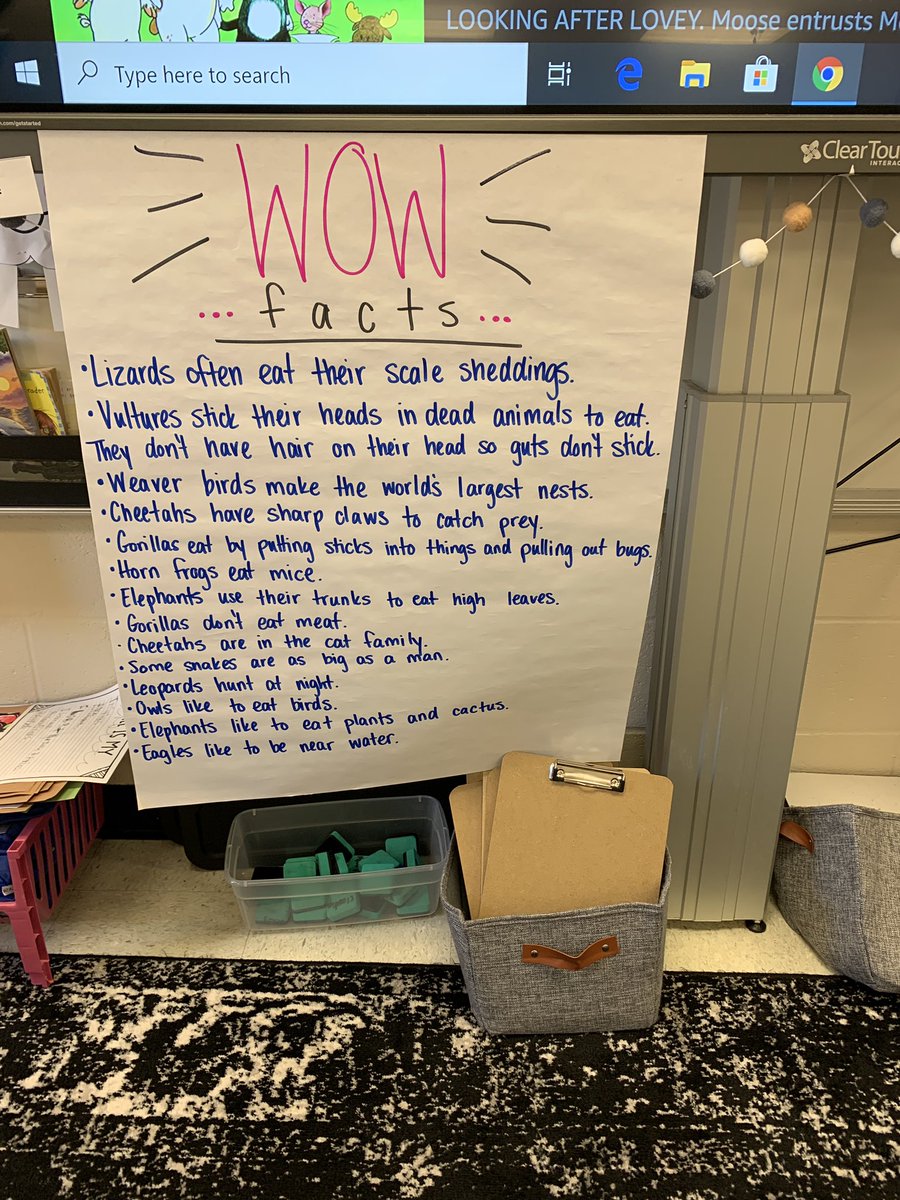 LOOKING AFTER LOVEY. Moose entrusts
Type here to search
.com/getstarted
ClearTou
INTERAC
WOW
... facts ...
• Lizards often eat their scale sheddings.
• Vultures stick their heads in dead animals to eat.
They don't have hair on their head so guts don't stick.
• Weaver birds make the world's largest nests.
• Cheetahs have sharp claws to catch prey.
• Gorillas eat by putting sticks into things and pulling out bugs.
• Horn frogs eat mice.
• Elephants use their trunks to eat high leaves.
• Gorillas don't eat meat.
• Cheetahs are in the cat family.
• Some snakes are as big as a man.
• Leopards hunt at night.
• Owls like to eat birds.
• Elephants like to eat plants and cactus.
• Eagles like to be near water.